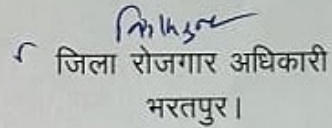 जिला रोजगार अधिकारी
भरतपुर।